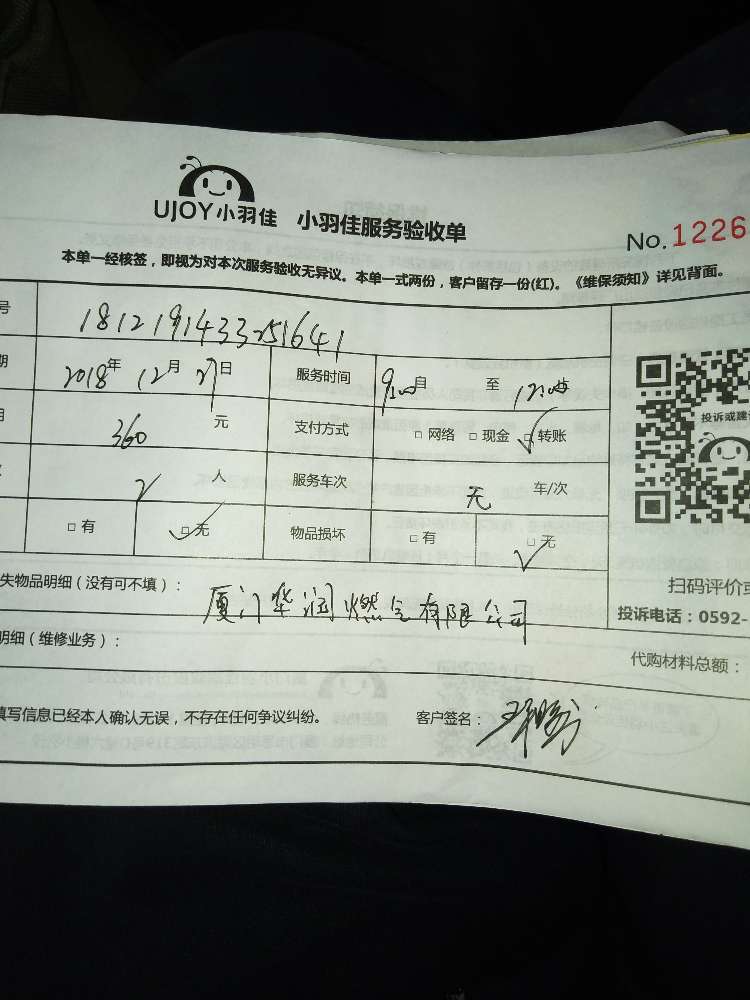 UJOY小羽佳 小羽佳服务验收单
No.1226
本单一经核签，即视为对本次服务验收无异议。本单一式两份，客户留存一份(红)。《维保须知》详见背面。
号 1812191433251641
期 2018年 12月 21日 服务时间 9:00 自 至 12:00 时
360 元 支付方式 □ 网络 □ 现金 □ 转账
2 人 服务车次 无 车/次
□ 有 □ 无 物品损坏 □ 有 □ 无
失物品明细（没有可不填）： 厦门华润燃气有限公司
明细（维修业务）：
投诉或建议
扫码评价或
投诉电话：0592-
代购材料总额：
填写信息已经本人确认无误，不存在任何争议纠纷。 客户签名：